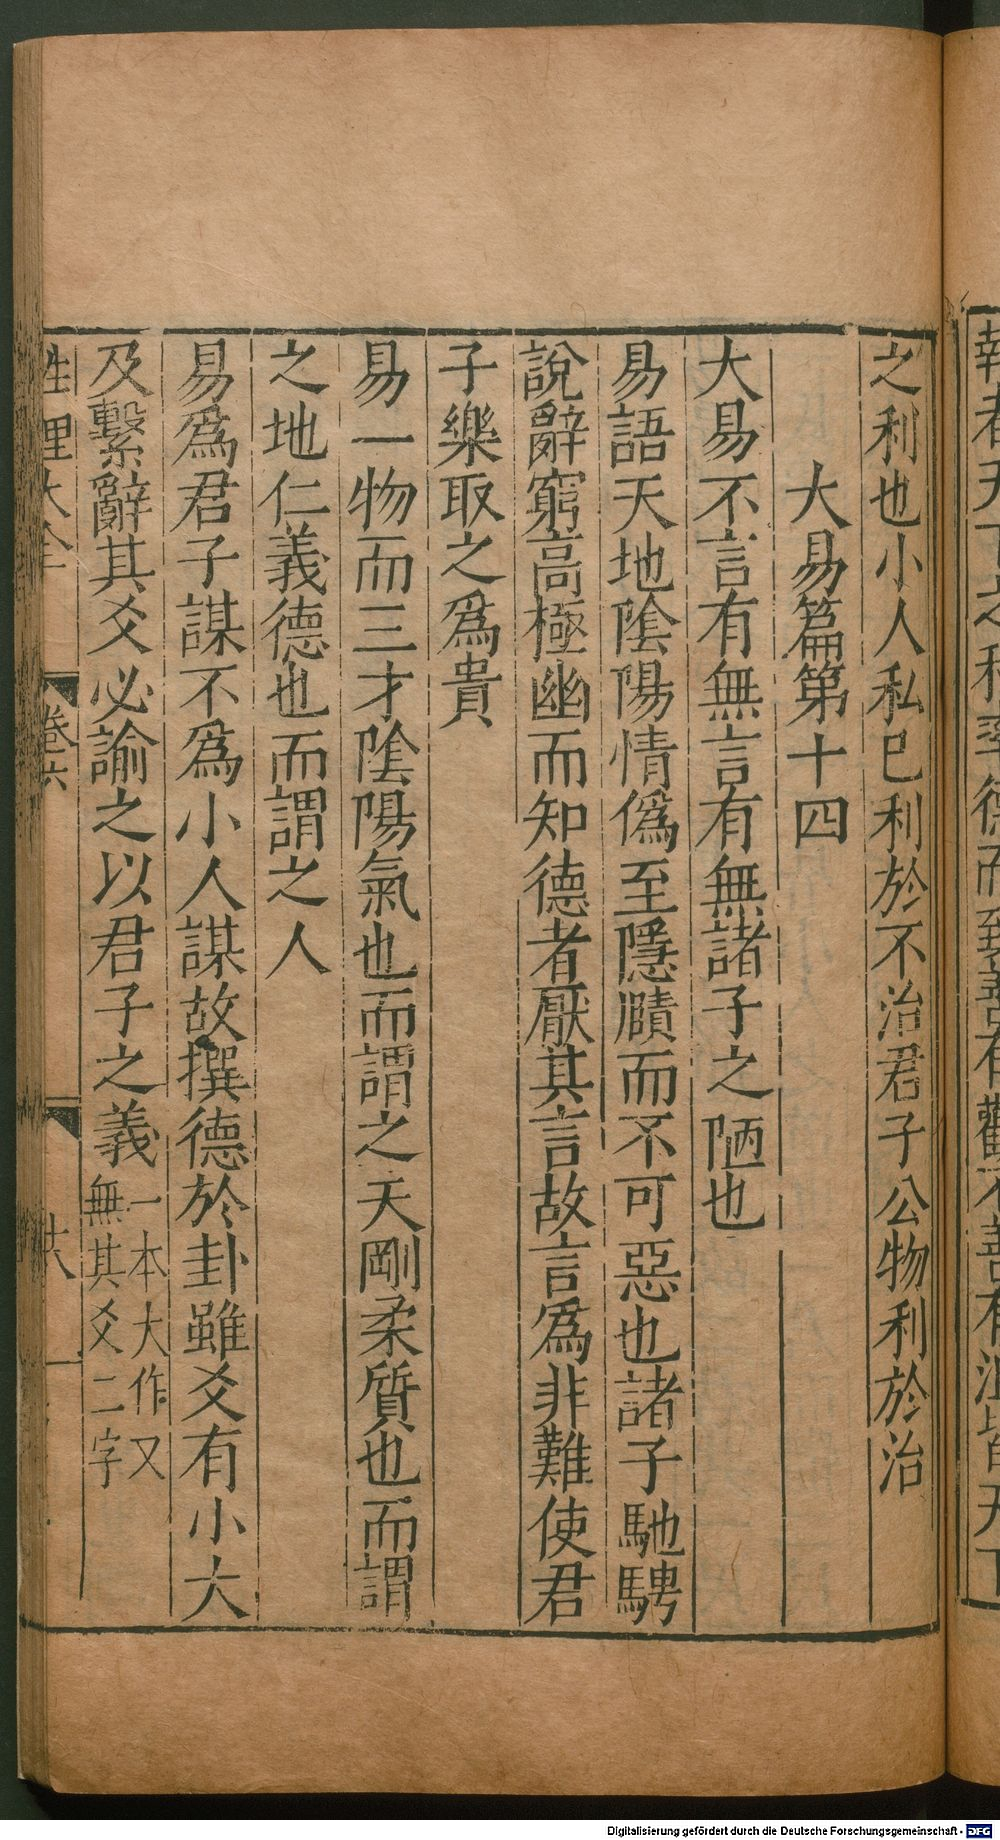 之利也小人私已利於不治君子公物利於治
大易篇第十四
大易不言有無言有無諸子之陋也
易語天地陰陽情偽至隱賾而不可惡也諸子馳騁
說辭窮高極幽而知德者厭其言故言爲非難使君
子樂取之爲貴
易一物而三才陰陽氣也而謂之天剛柔質也而謂
之地仁義德也而謂之人
易爲君子謀不爲小人謀故撰德於卦雖爻有小大
及繫辭其爻必諭之以君子之義一本大作又
無其爻二字
性理大全
卷六
廿八
Digitalisierung gefördert durch die Deutsche Forschungsgemeinschaft - DFG